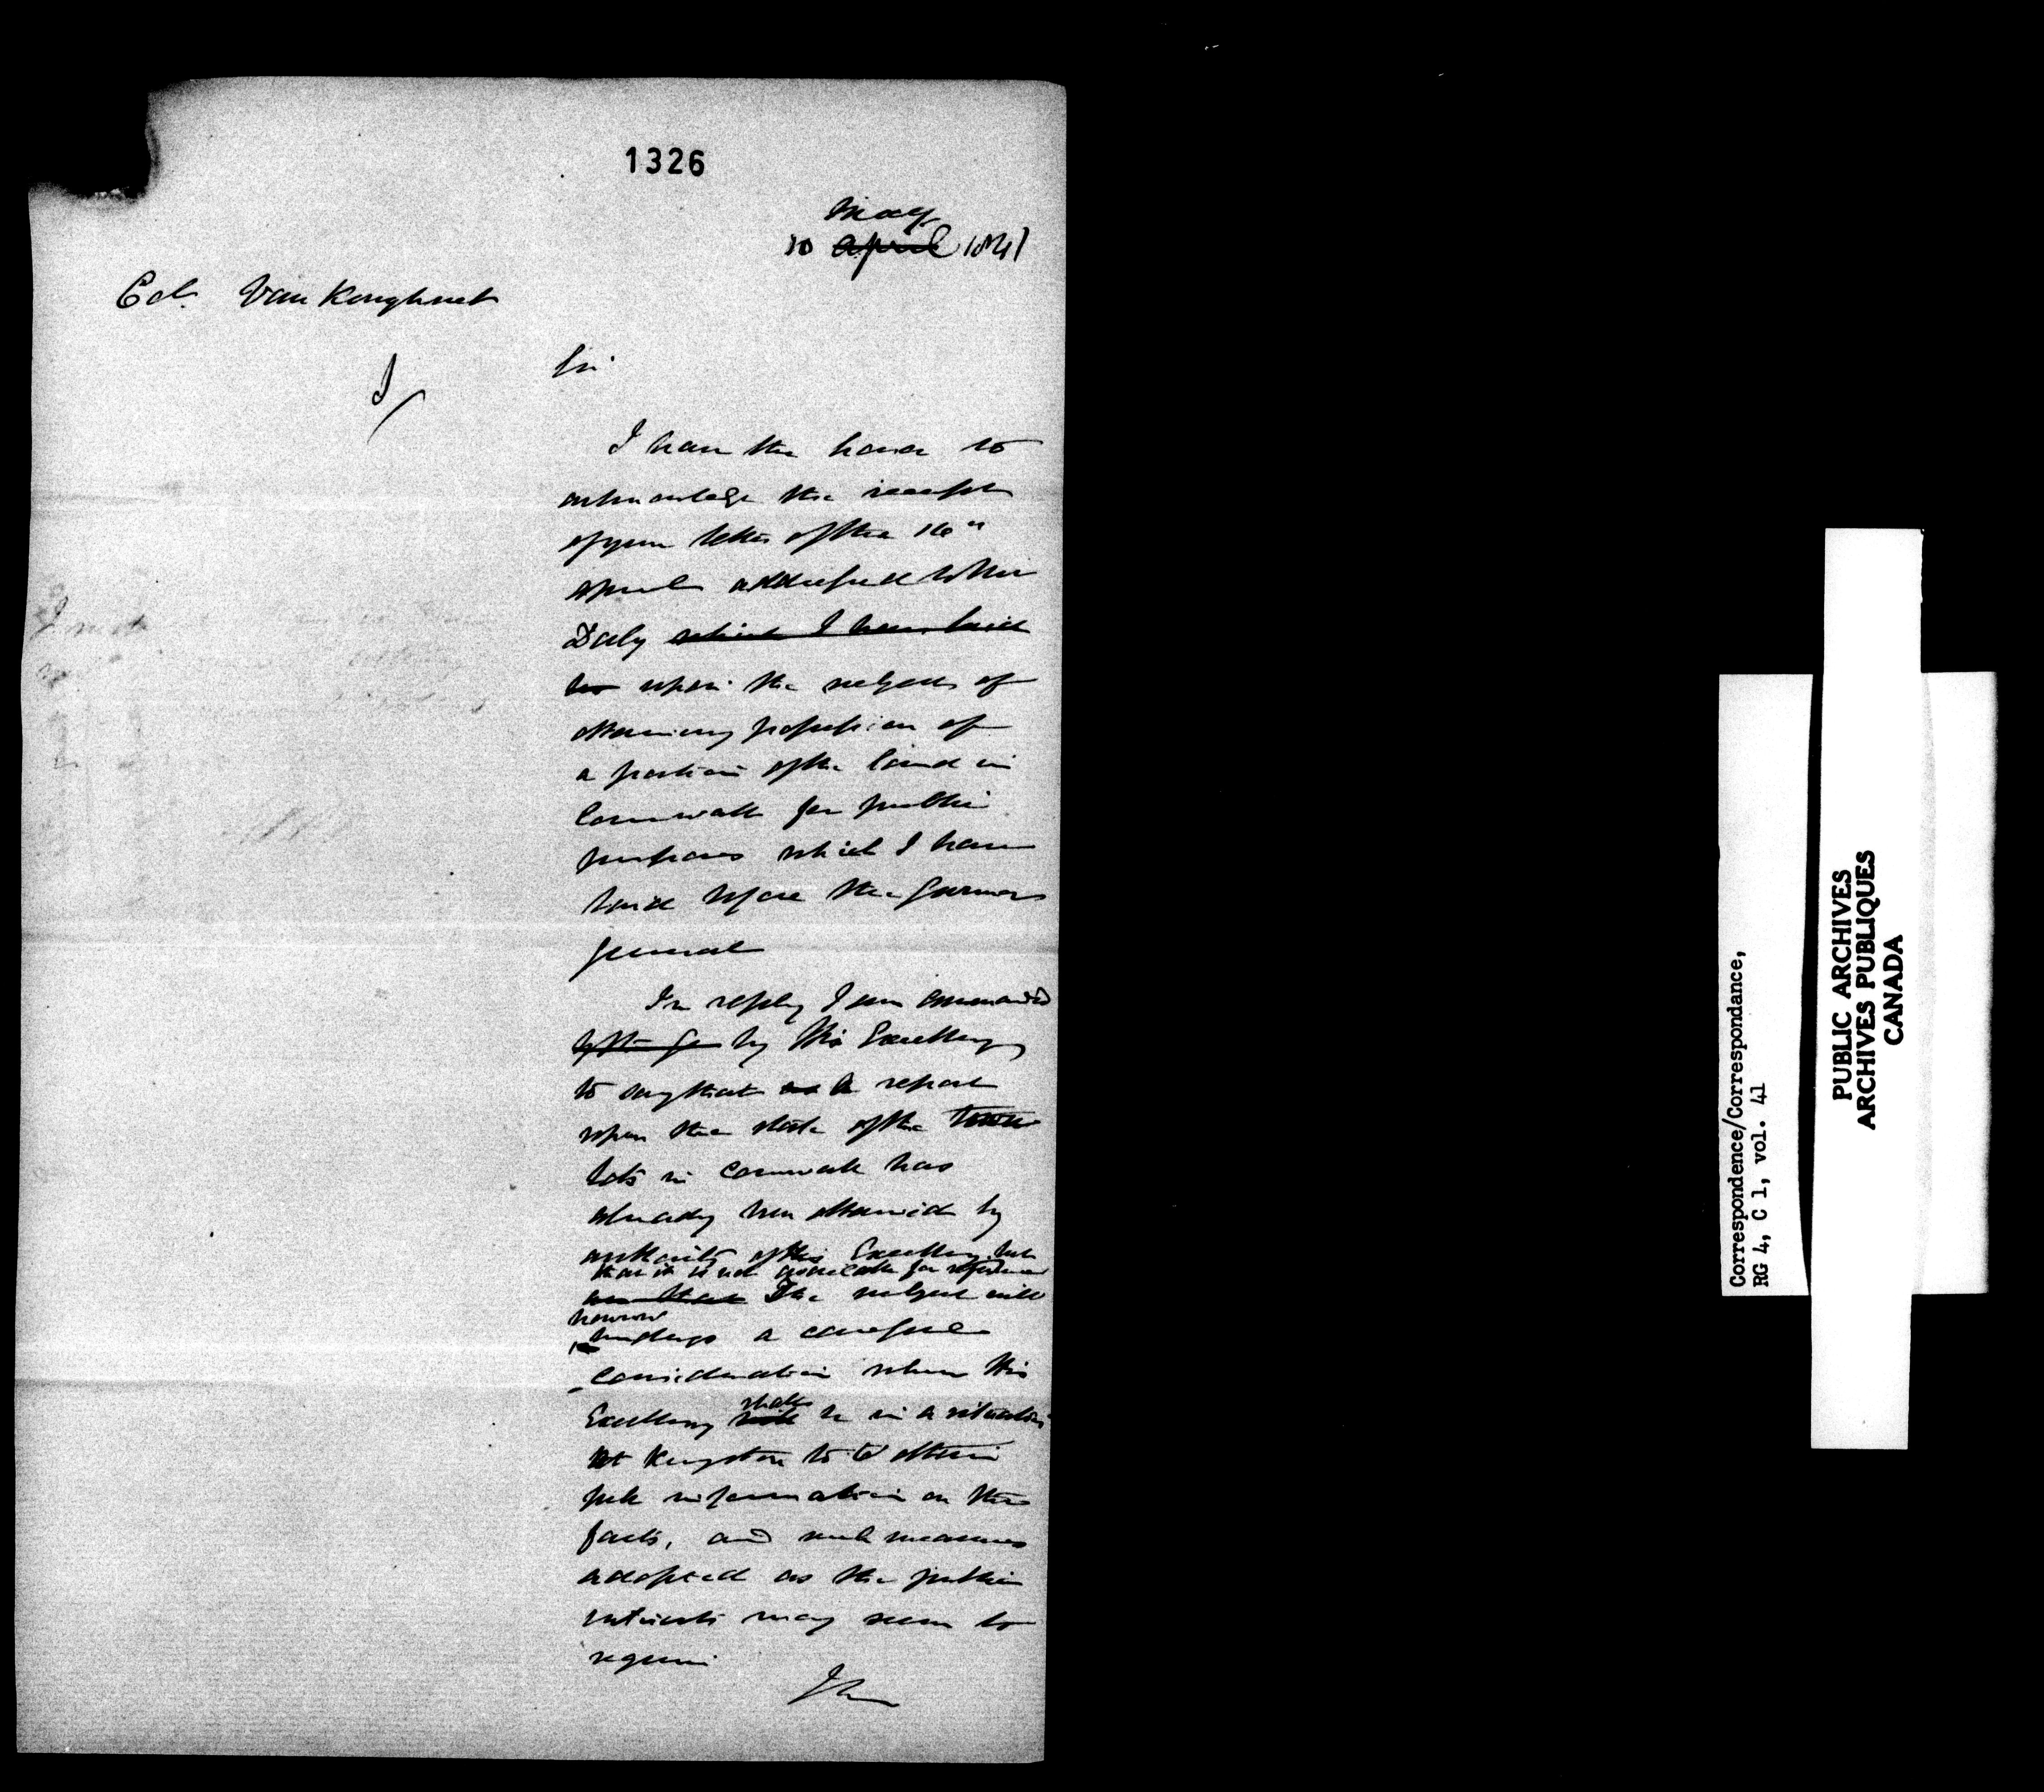 1326
May
10 april 1841
Col. Van Koughnet
Sir
I have the honor to
acknowledge the receipt
of your letter of the 16"
april addressed to Mr
Daly which I have laid
upon the subject of
obtaining possession of
a portion of the land in
Cornwall for public
purposes which I have
laid before the Governor
General
In reply I am commanded
by the Go by His Excellency
to say that a report
upon the state of the Town
lots in Cornwall has
already been obtained by
authority of His Excellency but
that it is not available for reference
The subject will
however
undergo a careful
consideration when His
shall
Excellency will be in a situation
at Kingston to obtain
full information on the
facts, and such measures
adopted as the public
interests may seem to
require
I h
Correspondence/Correspondance,
RG 4, C 1, vol. 41
PUBLIC ARCHIVES
ARCHIVES PUBLIQUES
CANADA